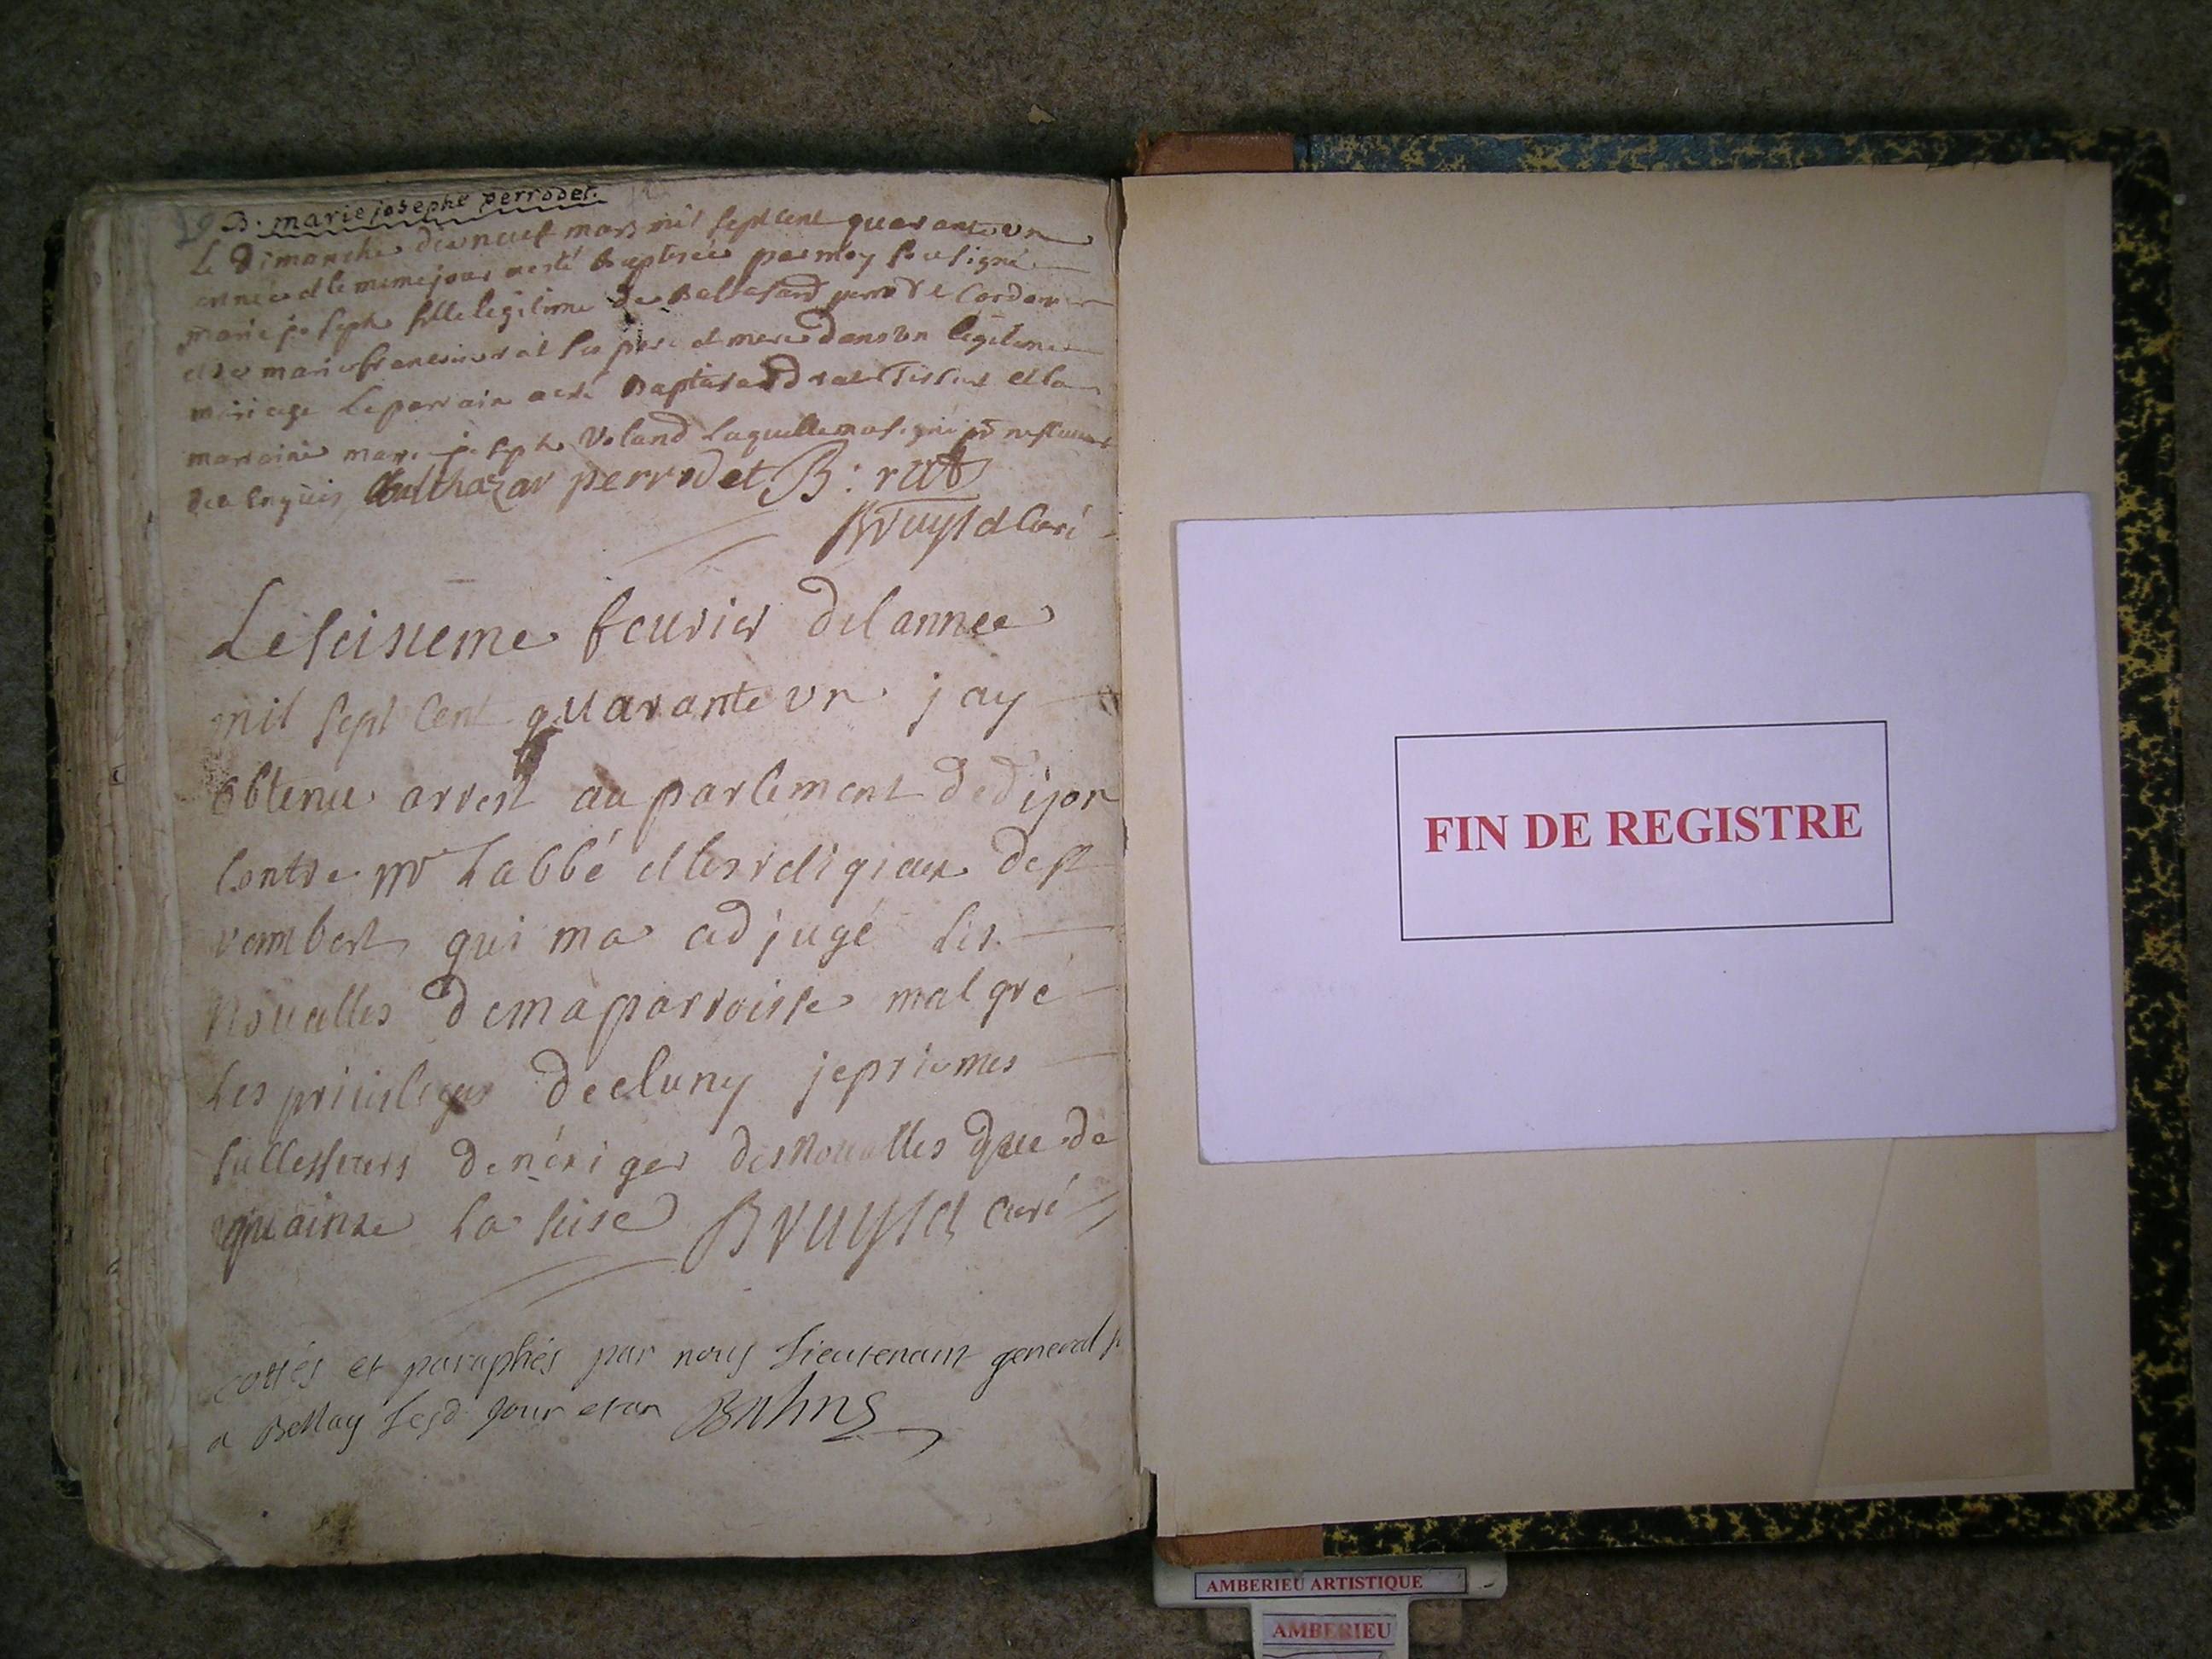 B. marie josephe perrodet.
Le Dimanche dix neuf mars mil sept cent quarante un
et le meme jour a esté Baptisée par moy soussigné
marie joseph fille legitime de Baltasard perrodet Cordonnier
et de marie francoise rat ses pere et mere dans un legitime
mariage Le parrain a esté Baptisard rat Tissier et la
marraine marie joseph Veland laquelle
de ce enquis Balthazar perrodet B: rat
Bruyset Curé
Le seisieme feurier de l annee
mil sept cent quarante un j ay
obtenu arrest au parlement de dijon
Contre mr Labbé et les religieux de st
rambert qui ma adjugé les
Nouelles de ma parroisse malgré
Les priuileges de cluny je prie mes
successeurs de n'exiger des Nouelles que de
quainze la seise Bruyset curé
cottés et paraphés par nous Lieutenant general
a Bellay Lesd jour et an
FIN DE REGISTRE
AMBERIEU ARTISTIQUE
AMBERIEU